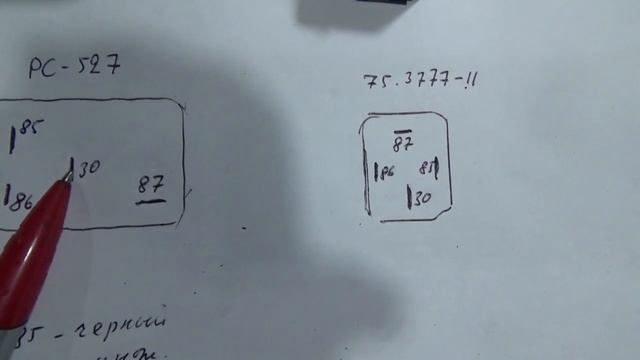 РС-527
75.3777-11
85
30
86
87
87
86 85
30
85 - черный